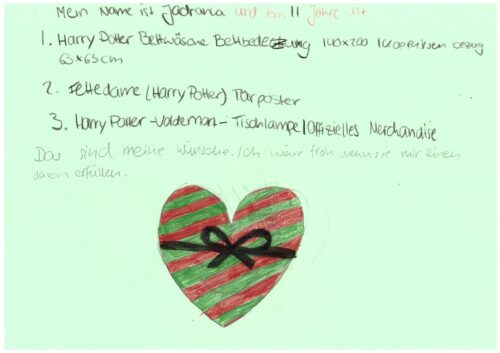 Mein Name ist Jadranka und bin 11 Jahre alt
1. Harry Potter Bettwäsche Bettbedeczung 140x200 1 Kopfkissen bezug
63x63cm
2. Fette dame (Harry Potter) Türposter
3. Harry Potter -Voldemort- Tischlampe/Offizielles Merchandise
Das sind meine Wünsche. Ich wärr froh wenn sie mir einen
davon erfüllen.